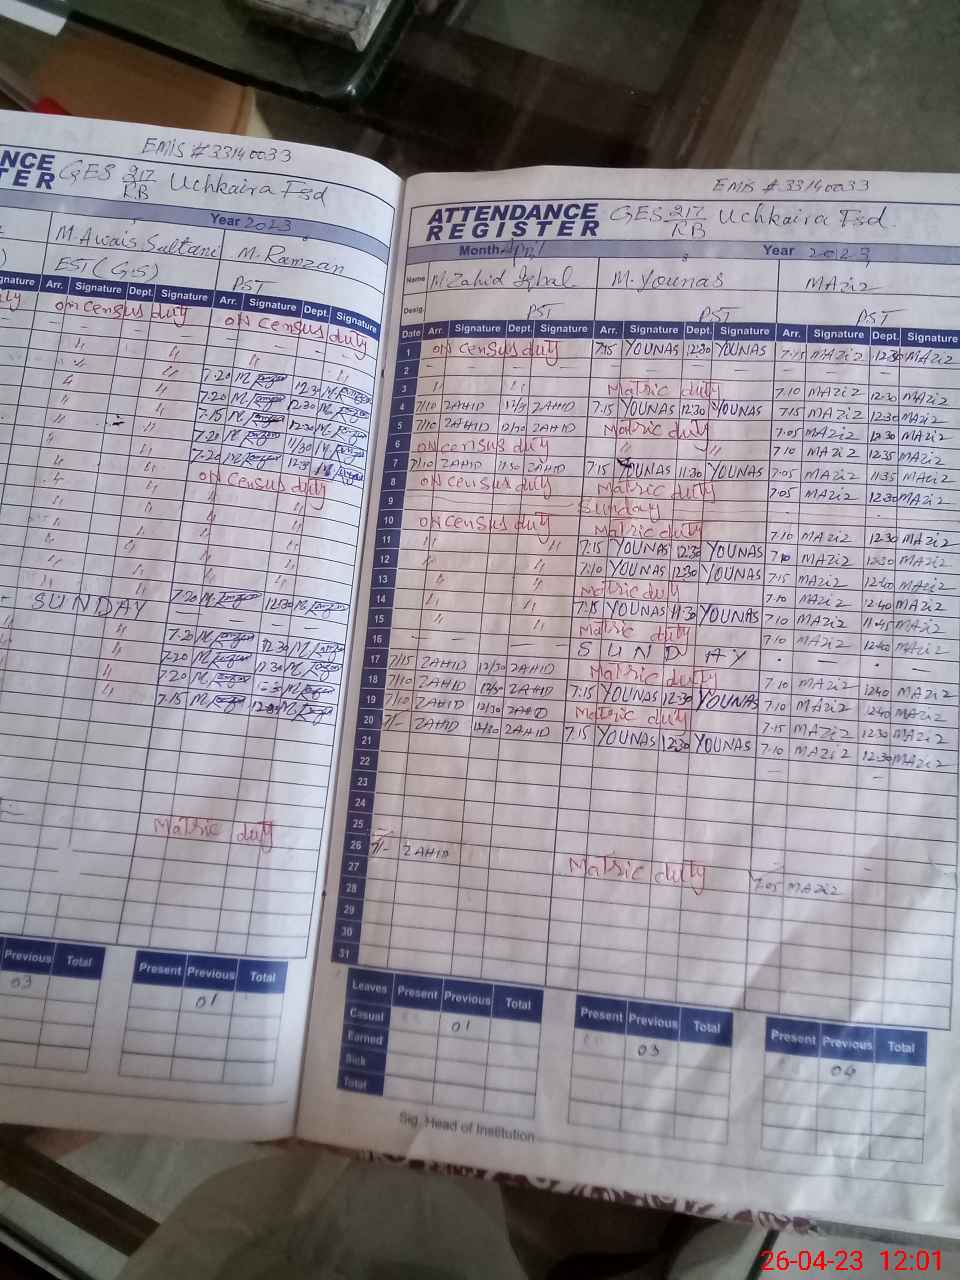 EMIS # 33140033
NCE
TER GES 217/RB Uchkaira Fsd
Year 2023
M. Awais Sultani M. Ramzan
EST (G.S) PST
Signature Arr. Signature Dept. Signature Arr. Signature Dept. Signature
duty ON Census duty ON Census duty
7.20 M.
7.20 M. 12.30 M.
7.15 M. 12.30 M.
7.20 M. 11/30 M.
7.20 M.
ON Census duty
SUNDAY 7.20 M. 12.30 M.
7.20 M. 12.30 M.
7.20 M. 11.30 M.
7.20 M.
7.15 M.
Matric duty
Previous Total Present Previous Total
03 01
EMIS # 33140033
ATTENDANCE GES 217/RB Uchkaira Fsd.
REGISTER
Month Year 2023
Name M Zahid Iqbal M. Younas MAziz
Desig. PST PST PST
Date Arr. Signature Dept. Signature Arr. Signature Dept. Signature Arr. Signature Dept. Signature
1 ON Census duty 7.15 YOUNAS 12.30 YOUNAS 7.15 MAziz 12.30 MAziz
2 — — — —
3 〃 〃 Matric duty 7.10 MAziz 12.30 MAziz
4 7/10 ZAHID 12/30 ZAHID 7.15 YOUNAS 12.30 YOUNAS 7.15 MAziz 12.30 MAziz
5 7/10 ZAHID 12/30 ZAHID Matric duty 7.05 MAziz 12.30 MAziz
6 ON Census duty 〃 〃 7.10 MAziz 12.35 MAziz
7 7/10 ZAHID 11.30 ZAHID 7.15 YOUNAS 11.30 YOUNAS 7.05 MAziz 11.35 MAziz
8 ON Census duty Matric duty 7.05 MAziz 12.30 MAziz
9 Sunday
10 ON Census duty Matric duty 7.10 MAziz 12.30 MAziz
11 〃 〃 7.15 YOUNAS 12.30 YOUNAS 7.10 MAziz 12.30 MAziz
12 〃 〃 7.10 YOUNAS 12.30 YOUNAS 7.15 MAziz 12.40 MAziz
13 〃 〃 Matric duty 7.10 MAziz 12.40 MAziz
14 〃 〃 7.15 YOUNAS 11.30 YOUNAS 7.10 MAziz 11.45 MAziz
15 〃 〃 Matric duty 7.10 MAziz 12.40 MAziz
16 — — SUNDAY — —
17 7/15 ZAHID 12/30 ZAHID Matric duty 7.10 MAziz 12.40 MAziz
18 7/10 ZAHID 12/30 ZAHID 7.15 YOUNAS 12.30 YOUNAS 7.10 MAziz 12.40 MAziz
19 7/10 ZAHID 12/30 ZAHID Matric duty 7.15 MAziz 12.30 MAziz
20 7/- ZAHID 12/30 ZAHID 7.15 YOUNAS 12.30 YOUNAS 7.10 MAziz 12.30 MAziz
21
22
23
24
25
26 7/- ZAHID Matric duty 7.05 MAziz
27
28
29
30
31
Leaves Present Previous Total Present Previous Total Present Previous Total
Casual 01 03 04
Earned
Sick
Total
Sig. Head of Institution
26-04-23 12:01